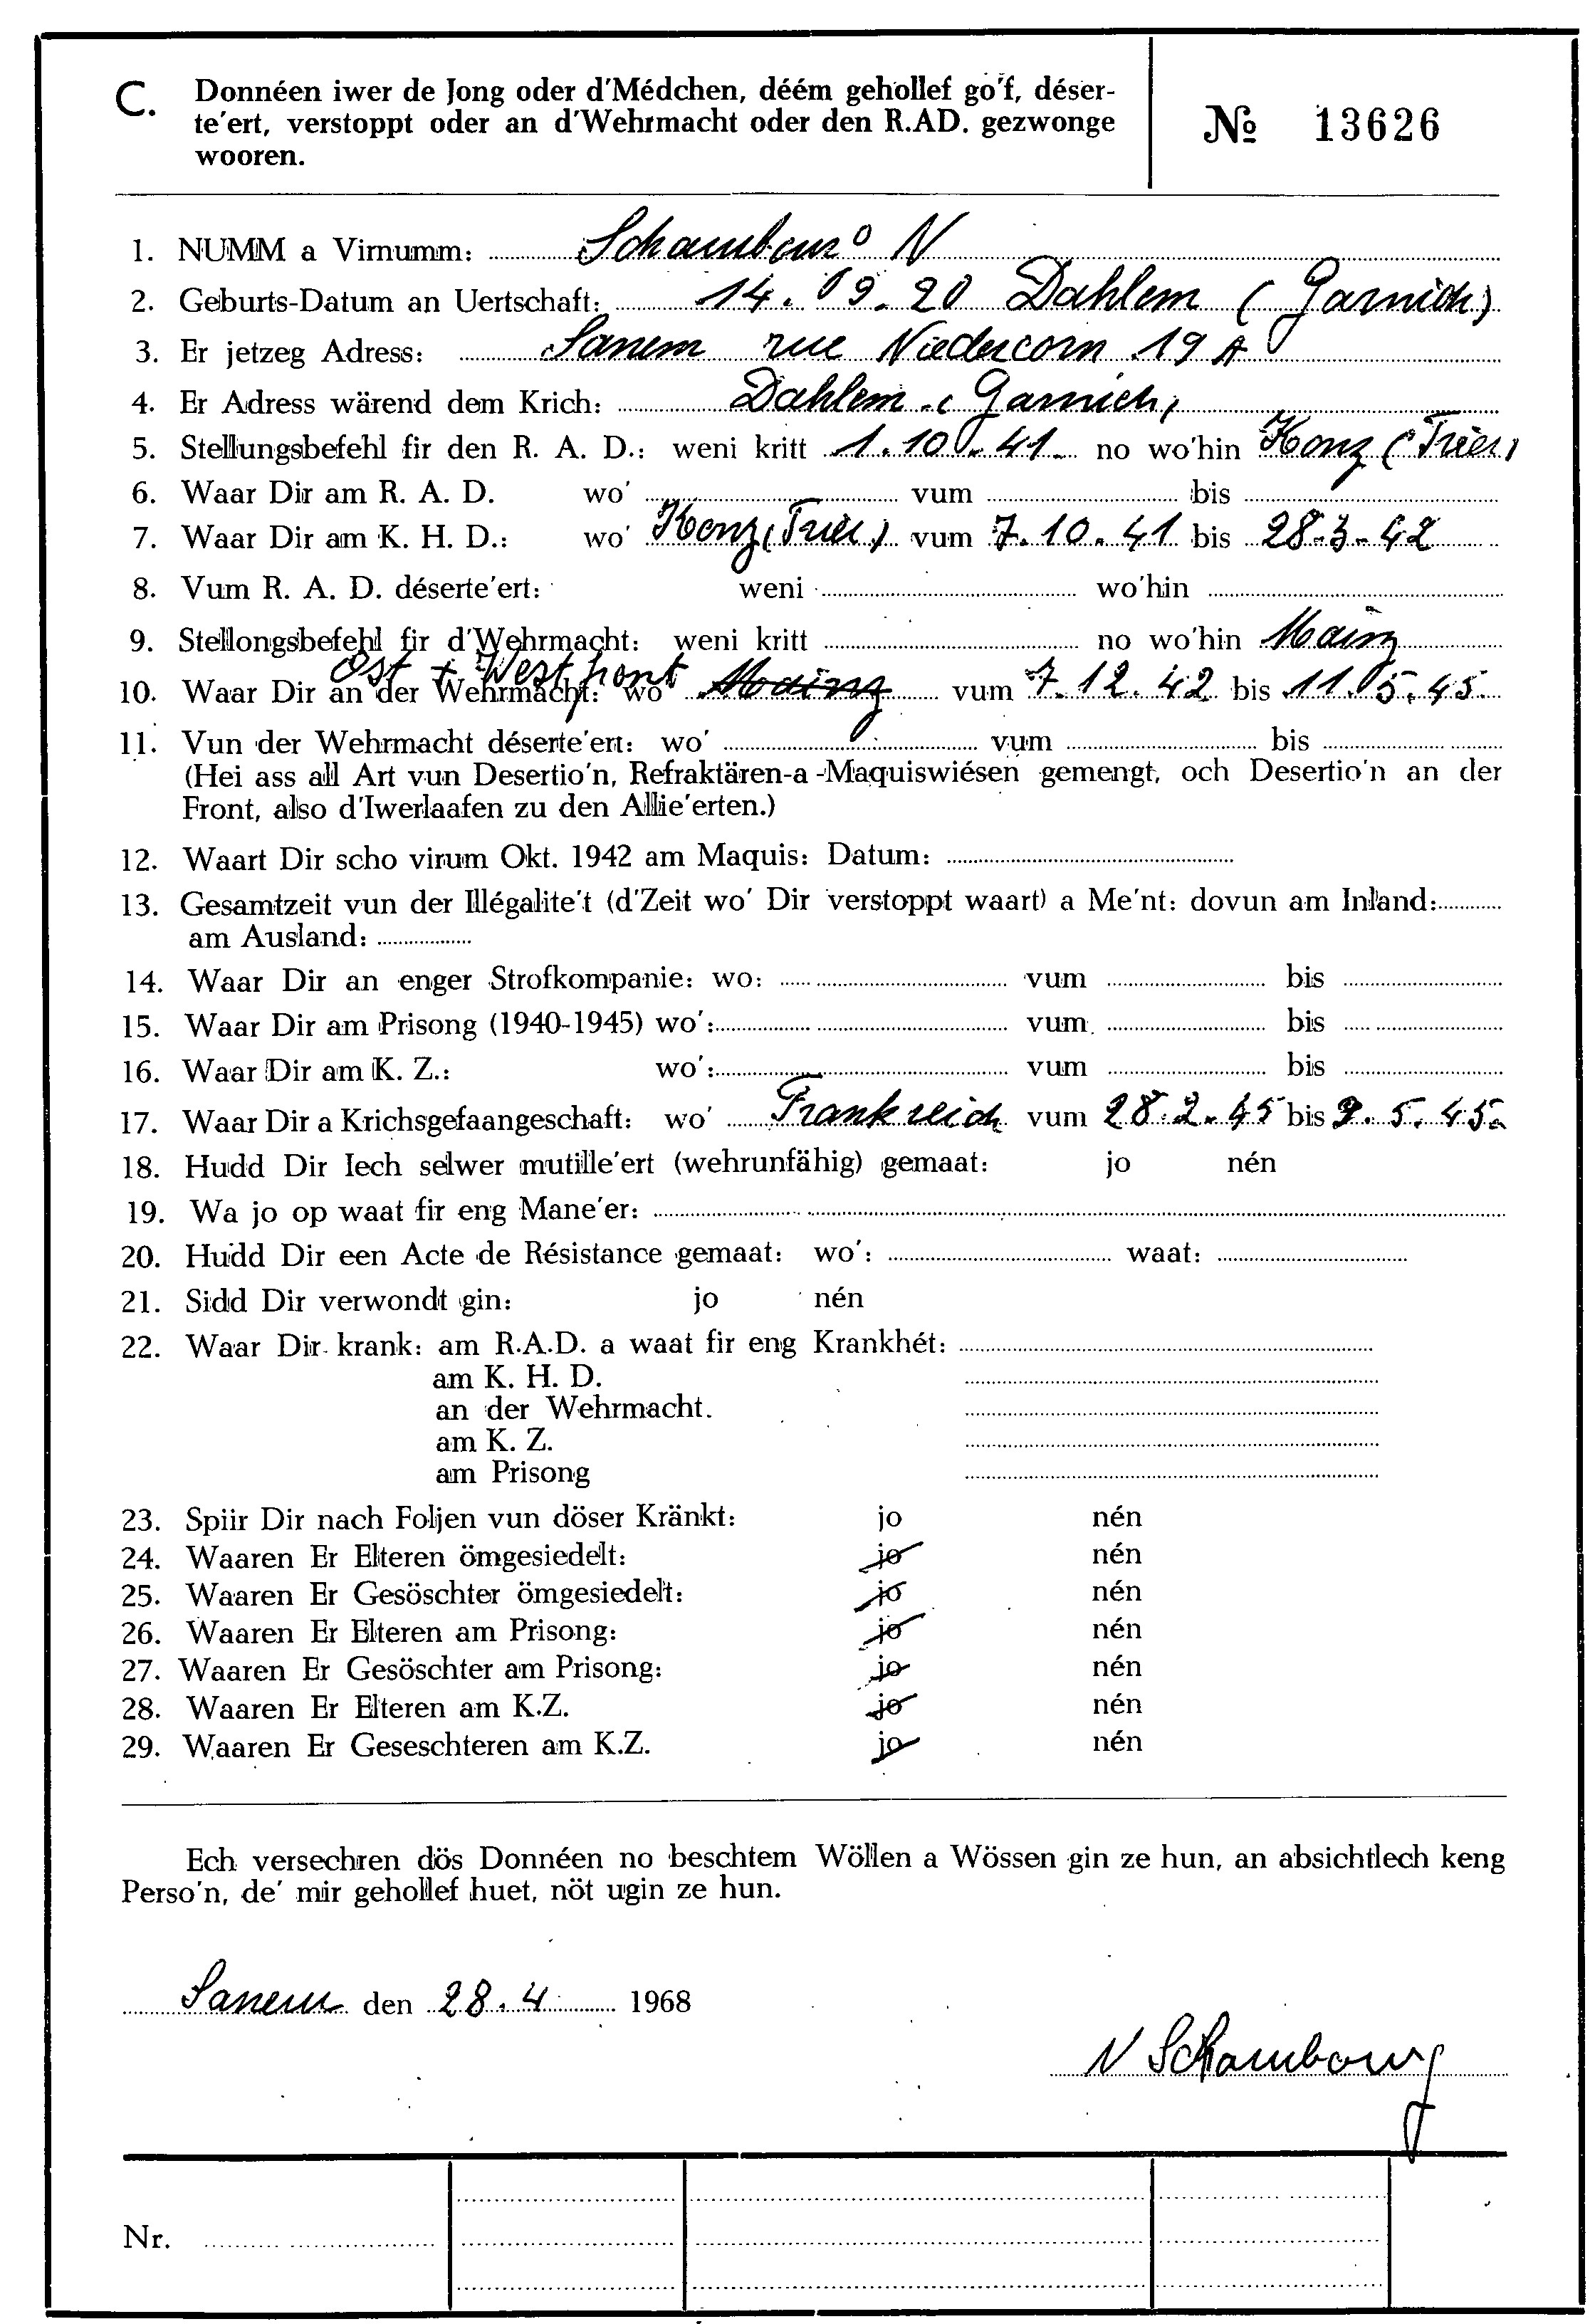 C. Donnéen iwer de Jong oder d'Médchen, déém gehollef go'f, déser-
te'ert, verstoppt oder an d'Wehrmacht oder den R.AD. gezwonge
wooren.
№ 13626
1. NUMM a Virnumm: Schambourg N
2. Geburts-Datum an Uertschaft: 14. 09. 20 Dahlem (Garnich)
3. Er jetzeg Adress: Sanem rue Niedercorn 19 A
4. Er Adress wärend dem Krich: Dahlem (Garnich)
5. Stellungsbefehl fir den R. A. D.: weni kritt 1.10.41 no wo'hin Konz (Trier)
6. Waar Dir am R. A. D. wo' vum bis
7. Waar Dir am K. H. D.: wo' Konz (Trier) vum 7.10.41 bis 28.3.42
8. Vum R. A. D. déserte'ert: weni wo'hin
9. Stellongsbefehl fir d'Wehrmacht: weni kritt no wo'hin Mainz
Ost + Westfront
10. Waar Dir an der Wehrmacht: wo' Mainz vum 7.12.42 bis 11.5.45.
11. Vun der Wehrmacht déserte'ert: wo' vum bis
(Hei ass all Art vun Desertio'n, Refraktären-a-Maquiswiésen gemengt, och Desertio'n an der
Front, also d'Iwerlaafen zu den Allie'erten.)
12. Waart Dir scho virum Okt. 1942 am Maquis: Datum:
13. Gesamtzeit vun der Illégalite't (d'Zeit wo' Dir verstoppt waart) a Me'nt: dovun am Inland:
am Ausland:
14. Waar Dir an enger Strofkompanie: wo: vum bis
15. Waar Dir am Prisong (1940-1945) wo': vum bis
16. Waar Dir am K. Z.: wo': vum bis
17. Waar Dir a Krichsgefaangeschaft: wo' Frankreich vum 28.2.45 bis 9.5.45.
18. Hudd Dir Iech selwer mutille'ert (wehrunfähig) gemaat: jo nén
19. Wa jo op waat fir eng Mane'er:
20. Hudd Dir een Acte de Résistance gemaat: wo': waat:
21. Sidd Dir verwondt gin: jo nén
22. Waar Dir krank: am R.A.D. a waat fir eng Krankhét:
am K. H. D.
an der Wehrmacht.
am K. Z.
am Prisong
23. Spiir Dir nach Foljen vun döser Kränkt: jo nén
24. Waaren Er Elteren ömgesiedelt: jo nén
25. Waaren Er Gesöschter ömgesiedelt: jo nén
26. Waaren Er Elteren am Prisong: jo nén
27. Waaren Er Gesöschter am Prisong: jo nén
28. Waaren Er Elteren am K.Z. jo nén
29. Waaren Er Geseschteren am K.Z. jo nén
Ech versechren dös Donnéen no beschtem Wöllen a Wössen gin ze hun, an absichtlech keng
Perso'n, de' mir gehollef huet, nöt ugin ze hun.
Sanem den 28.4 1968
N Schambourg
Nr.